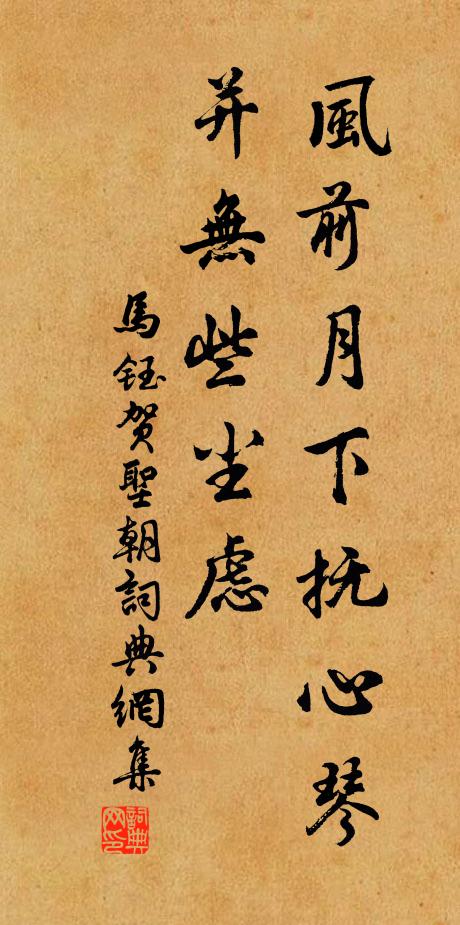 風前月下抚心琴
并無些尘慮
馬鈺贺聖朝詞典網集
詞典网印